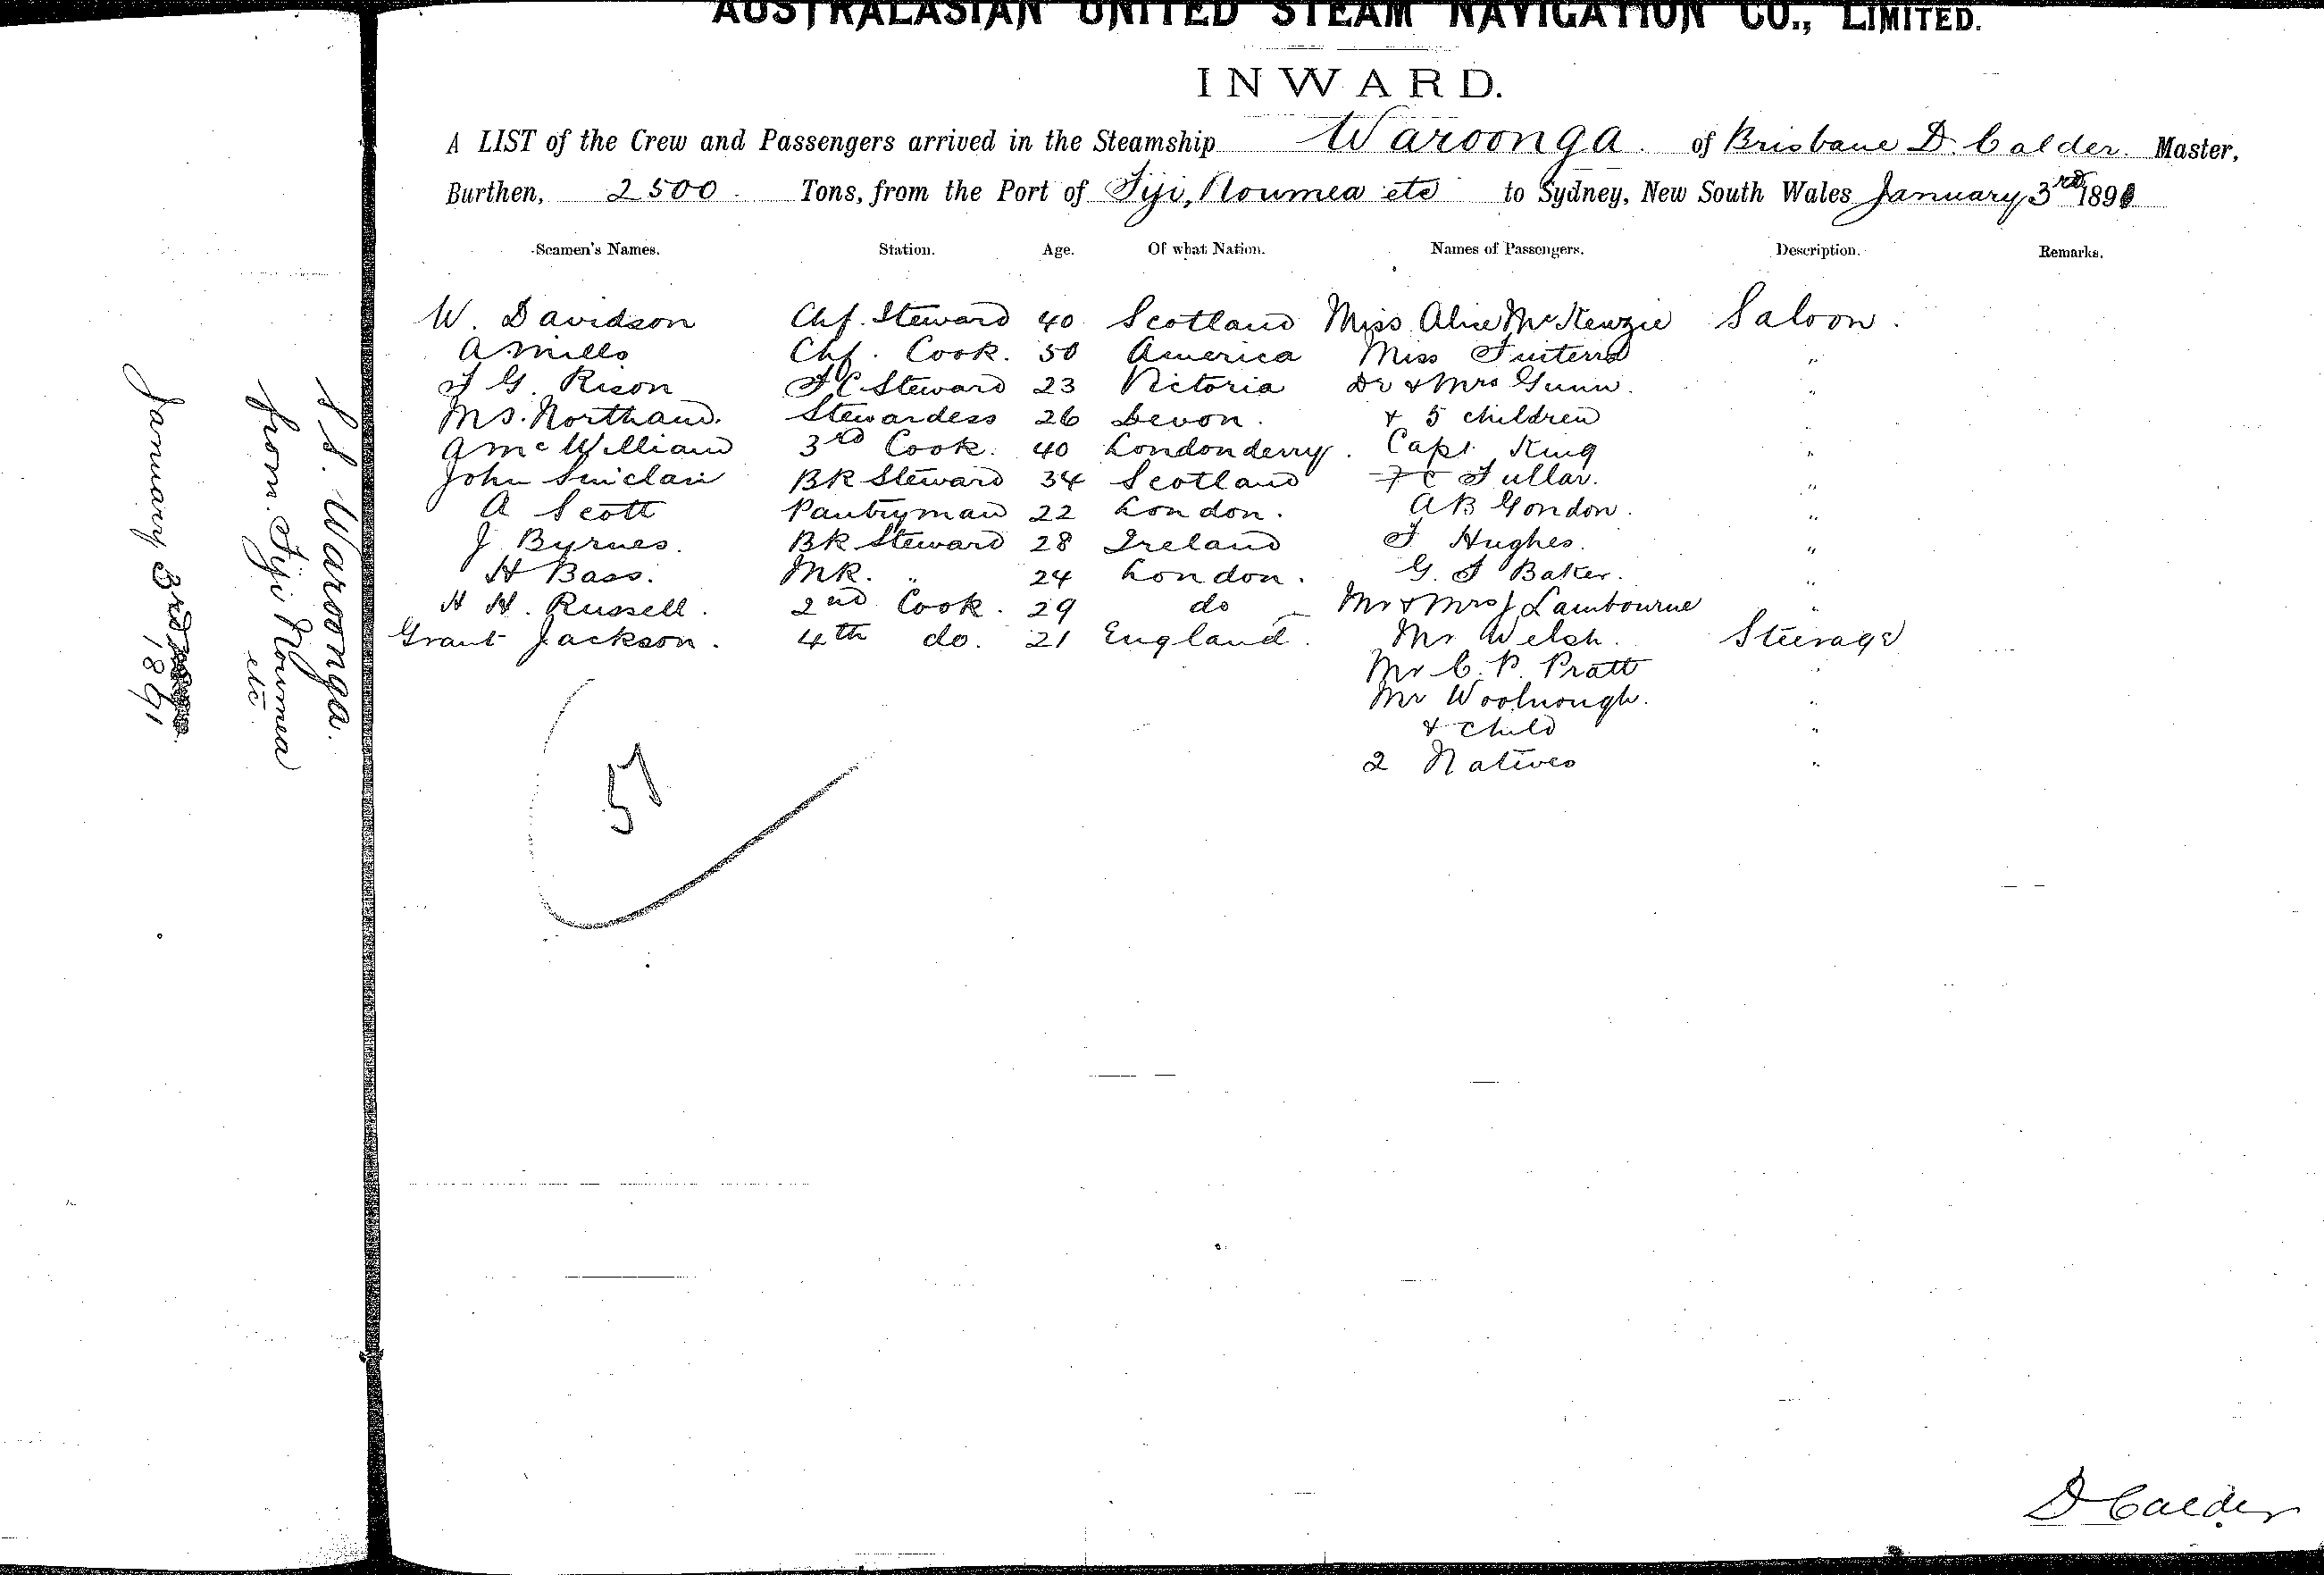 AUSTRALASIAN UNITED STEAM NAVIGATION CO., LIMITED.
INWARD.
A LIST of the Crew and Passengers arrived in the Steamship Waroonga of Brisbane D. Calder Master,
Burthen, 2500 Tons, from the Port of Fiji, Noumea etc to Sydney, New South Wales January 3rd 1891
Seamen's Names. Station. Age. Of what Nation. Names of Passengers. Description. Remarks.
W. Davidson Chf. Steward 40 Scotland Miss Alice McKenzie Saloon.
A Mills Chf. Cook. 50 America Miss "
F G. Rison F C Steward 23 Victoria Dr & Mrs Gunn. "
M S. Northam. Stewardess 26 Devon. & 5 children "
A Mc William 3rd Cook. 40 Londonderry. Capt King "
John Sinclair BR Steward 34 Scotland F C Fullar. "
A Scott Pantryman 22 London. A B Gondon. "
J Byrnes. BR Steward 28 Ireland F Hughes. "
H Bass. MR. " 24 London. G. F Baker. "
H H. Russell. 2nd Cook. 29 do Mr & Mrs J Lambourne "
Grant Jackson. 4th do. 21 England. Mr Welsh. Steerage
Mr C. P. Pratt "
Mr Woolnough. "
& child "
2 Natives "
51
D Calder
S.S. Waroonga.
from Fiji Noumea
etc.
January 3rd
1891